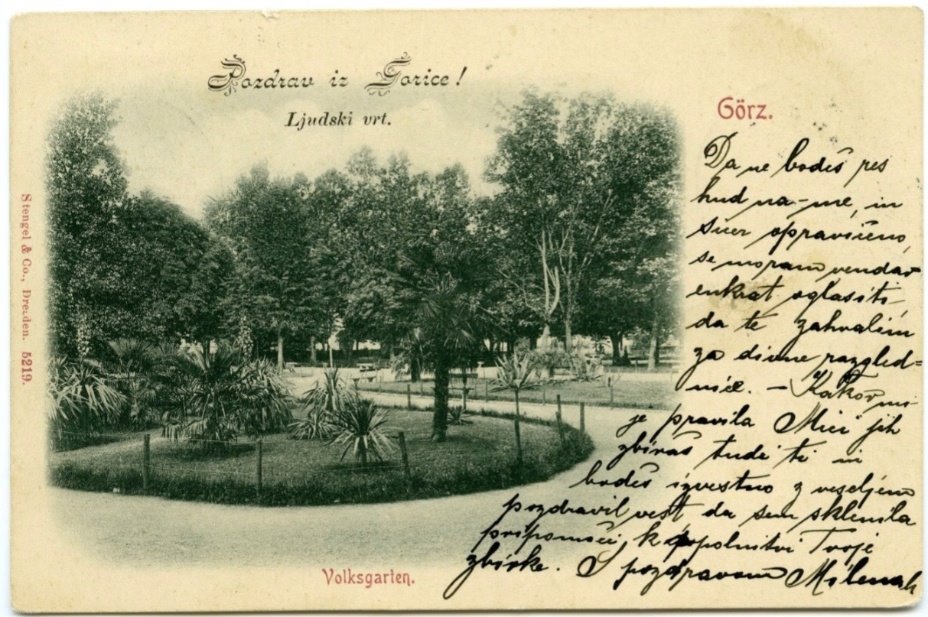 Pozdrav iz Gorice!
Ljudski vrt.
Görz.
Stengel & Co., Dresden. 5219.
Da ne bodeš res
hud na-me, in
sicer opravičeno,
se moram vendar
enkrat oglasiti
da te zahvalim
za divne razgled=
nice. - Kakor mi
je pravila Mici jih
zbiraš tudi ti in
bodeš izvestno z veseljem
pozdravil vest da sem sklenila
pripomoči k popolnitvi Tvoje
zbirke. S pozdravom Milenak
Volksgarten.